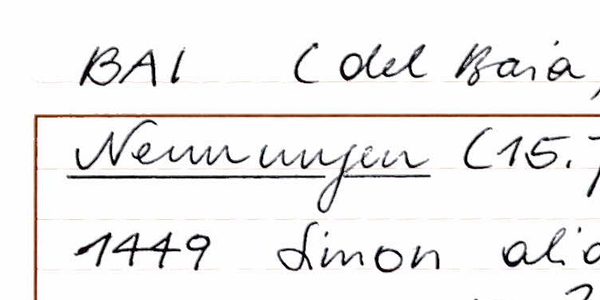 BAI (del Baia,
Nennungen (15.
1449 Simon alia